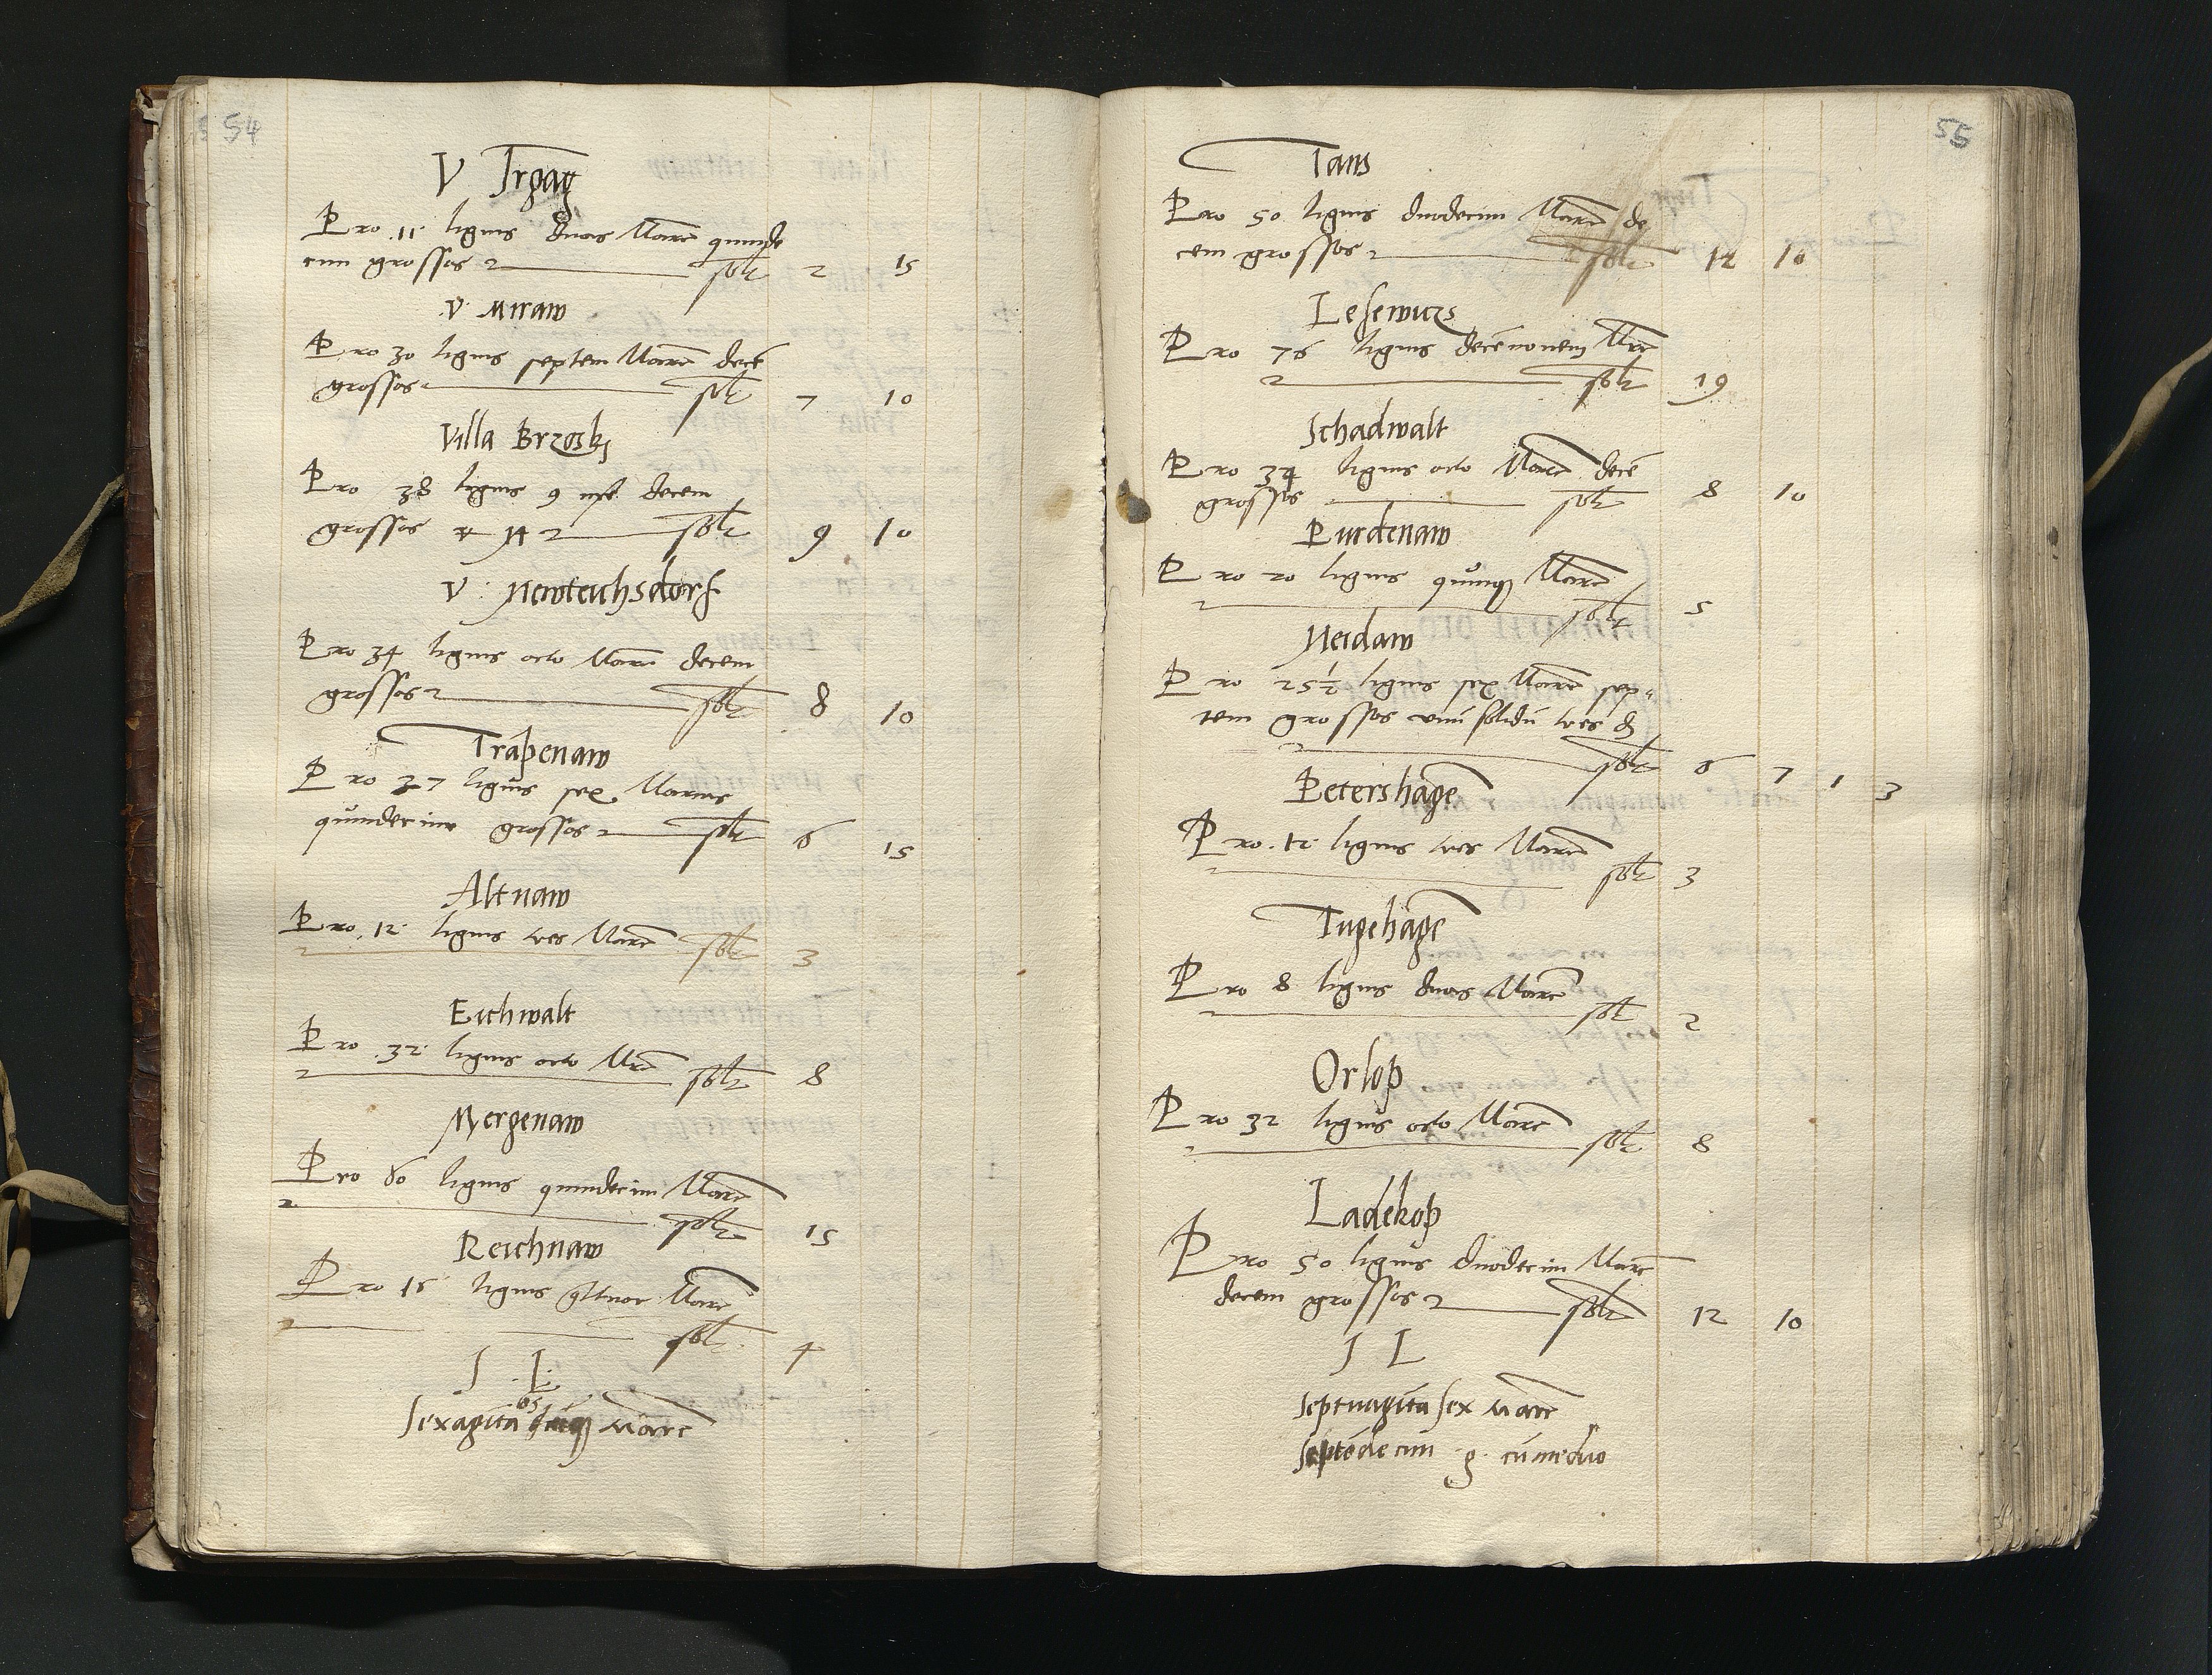 54
V Irgang
Pro 11 lignis duas Marc quinde
cim grossos solt 2 15
V. Miraw
Pro 30 lignis septem Marc decē
grossos solt 7 10
Villa Brzoski
Pro 38 lignis 9 mr decem
grossos solt 9 10
V: Newteichsdorf
Pro 34 lignis octo Marc decem
grossos solt 8 10
Trapenaw
Pro 27 lignis sex Marcas
quindecim grossos solt 6 15
Altnaw
Pro 12 lignis tres Marc solt 3
Eichwalt
Pro 32 lignis octo Mrc solt 8
Mergenaw
Pro 60 lignis quindecim Marc
solt 15
Reichnaw
Pro 16 lignis qttuor Marc
solt 4
S L
65
Sexagīta Marc
55
Tans
Pro 50 lignis duodecim Marc de
cem grossos solt 12 10
Lesewicz
Pro 76 lignis decēnovem Mrc
solt 19
Schadwalt
Pro 34 lignis octo Marc decē
grossos solt 8 10
Purdenaw
Pro 20 lignis quinqȝ Marc
solt 5
Neidaw
Pro 25½ lignis sex Marc sep
tem grossos unū solidū tres d
solt 6 7 1 3
Petershagē
Pro 12 lignis tres Marc
solt 3
Tugehagē
Pro 8 lignis duas Marc
solt 2
Orlop
Pro 32 lignis octo Marc
solt 8
Ladekop
Pro 50 lignis duodecim Marc
decem grossos solt 12 10
S L
Septuagīta sex Marc
Septēdecim g. cū medio